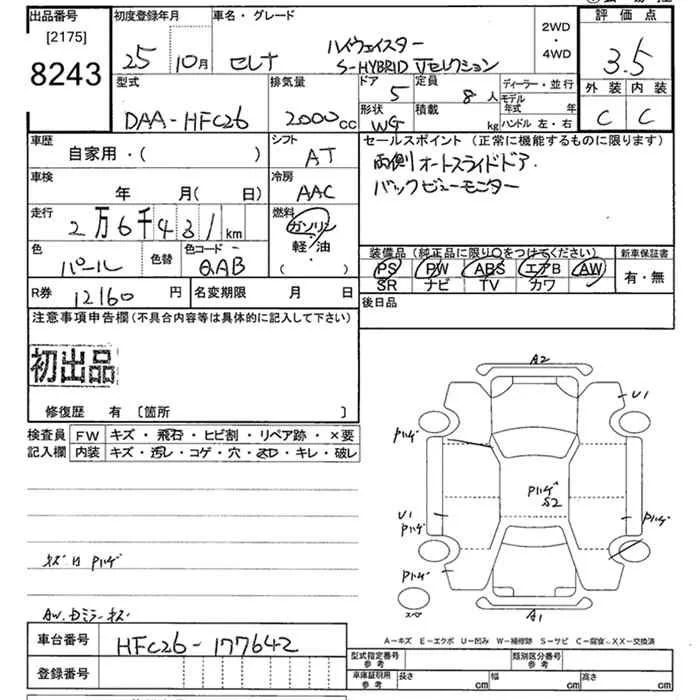 出品番号 初度登録年月 車名・グレード 2WD・4WD 評価点
[2175]
8243
25 10月 セレナ ハイウェイスター S-HYBRID Vセレクション
3.5
外装 内装
C C
型式 排気量 ドア 定員 ディーラー・並行
DAA-HFC26 2000cc 5 8人 モデル年式 年
形状 積載 ハンドル 左・右
WG kg
車歴 シフト セールスポイント (正常に機能するものに限ります)
自家用・( ) AT 両側オートスライドドア.
バックビューモニター
車検 冷房
年 月(日) AAC
走行 燃料
2万6千431km ガソリン
軽・油
( )
色 色替 色コード
パール QAB
装備品 (純正品に限り○をつけてください) 新車保証書
PS PW ABS エアB AW 有・無
SR ナビ TV カワ
R券 12160円 名変期限 月 日
後日品
注意事項申告欄(不具合内容等は具体的に記入して下さい)
初出品
修復歴 有 [箇所 ]
検査員 FW キズ・飛石・ヒビ割・リペア跡・×要
記入欄 内装 キズ・汚レ・コゲ・穴・ヌレ・キレ・破レ
A2
U1
Pハゲ
Pハゲ
S2
U1
Pハゲ
Pハゲ
Pハゲ
A1
キズはPハゲ
AW.Dミラーキズ
A-キズ E-エクボ U-凹み W-補修跡 S-サビ C-腐食 X・XX-交換済
車台番号 HFC26-177642
型式指定番号 参考 類別区分番号 参考
登録番号
車庫証明用 参考 長さ cm 幅 cm 高さ cm